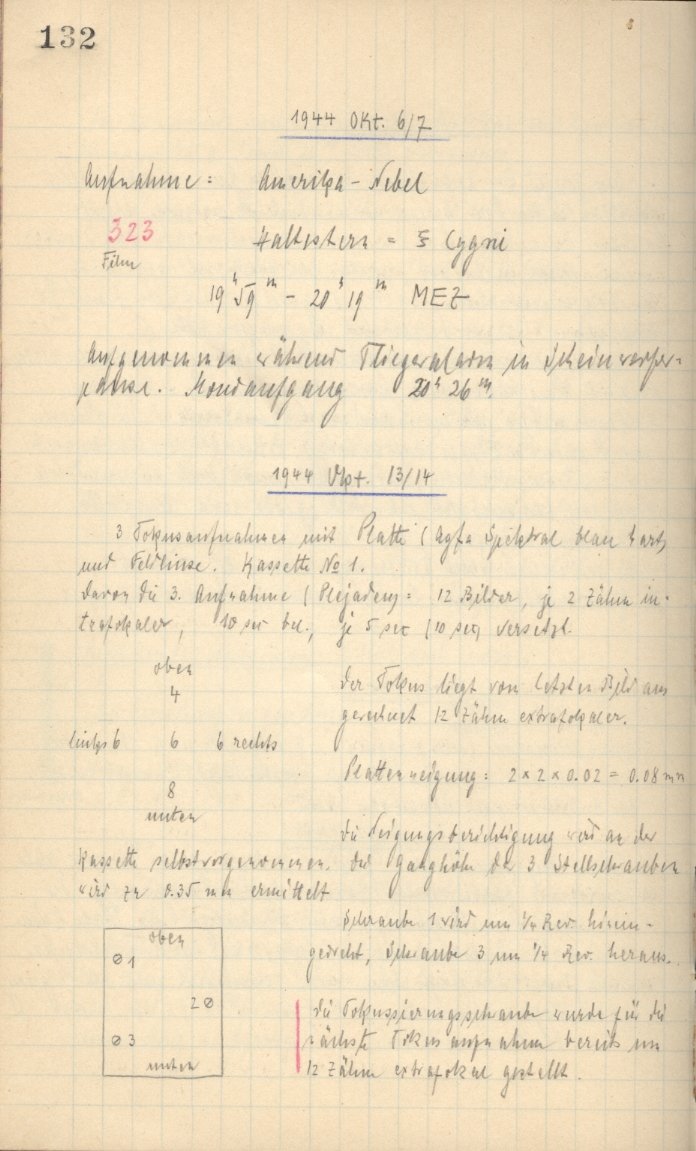 132
1944 Okt. 6/7
Aufnahme: Amerika-Nebel
323
Film
Haltestern = ξ Cygni
19ʰ59ᵐ - 20ʰ19ᵐ MEZ
Aufgenommen während Fliegeralarm in Scheinwerfer-
pause. Mondaufgang 20ʰ26ᵐ.
1944 Okt. 13/14
3 Fokusaufnahmen mit Platte (Agfa Spektral blau hart)
und Feldlinse. Kassette No 1.
Davon die 3. Aufnahme (Plejaden): 12 Bilder, je 2 Zähne in-
trafokaler, 10 sec bel., je 5 sec (10 sec) versetzt.
oben
4
links 6 6 6 rechts
8
unten
Der Fokus liegt vom letzten Bild aus
gerechnet 12 Zähne extrafokaler.
Plattenneigung: 2 x 2 x 0.02 = 0.08 mm
Die Neigungsberichtigung wird an der
Kassette selbst vorgenommen. Die Ganghöhe der 3 Stellschrauben
wird zu 0.35 mm ermittelt
Schraube 1 wird um 1/4 Rev. hinein-
gedreht, Schraube 3 um 1/4 Rev. heraus.
oben
1
2
3
unten
Die Fokussierungsschraube wurde für die
nächste Fokusaufnahme bereits um
12 Zähne extrafokal gestellt.